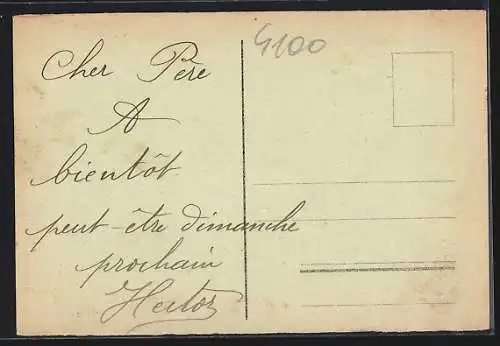 Cher Père
A
bientôt
peut-être dimanche
prochain
Hector
4100